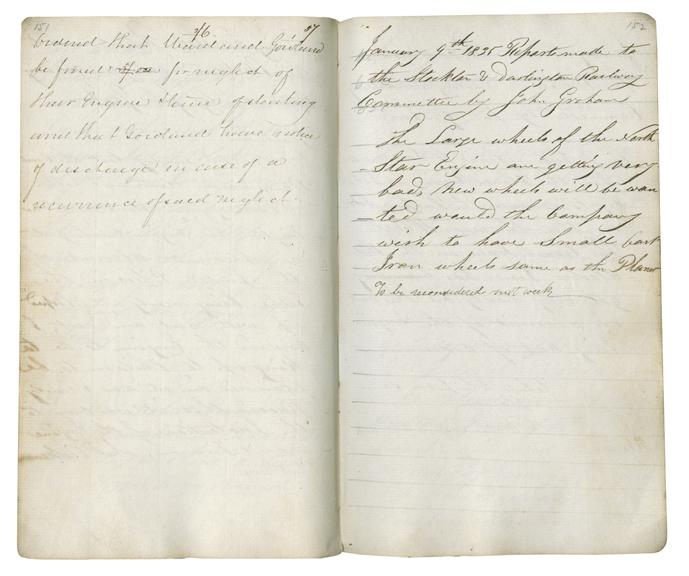 151
Ordered that Ward and Goidland
be fined for neglect of
their Engine
and that Goidland have notice
of discharge in case of a
recurrence of said neglect
152
January 9th 1835 Reports made to
the Stockton & Darlington Railway
Committee by John Graham
The Large wheels of the North
Star Engine are getting very
bad, New wheels will be wan
ted would the Company
wish to have Small Cast
Iron wheels same as the Planet
To be reconsidered next week